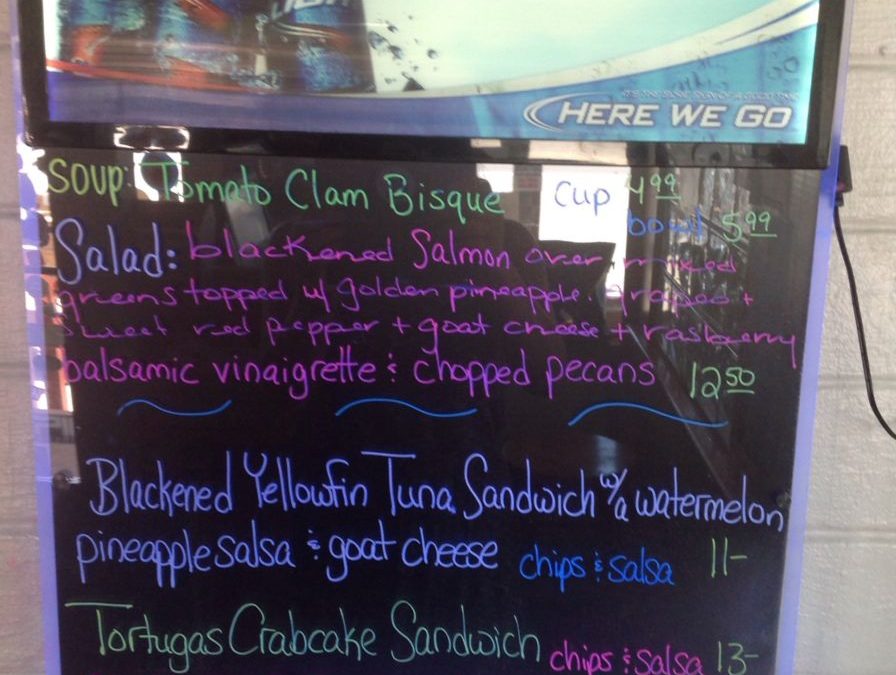 LIGHT
IT'S THE SURE SIGN OF A GOOD TIME
HERE WE GO
Soup: Tomato Clam Bisque Cup 4.99
bowl 5.99
Salad: blackened Salmon over mixed
greens topped w/ golden pineapple, grapes +
sweet red pepper + goat cheese + rasberry
balsamic vinaigrette & chopped pecans 12.50
Blackened Yellowfin Tuna Sandwich w/a watermelon
pineapple salsa & goat cheese chips & salsa 11-
Tortugas Crabcake Sandwich chips & salsa 13-